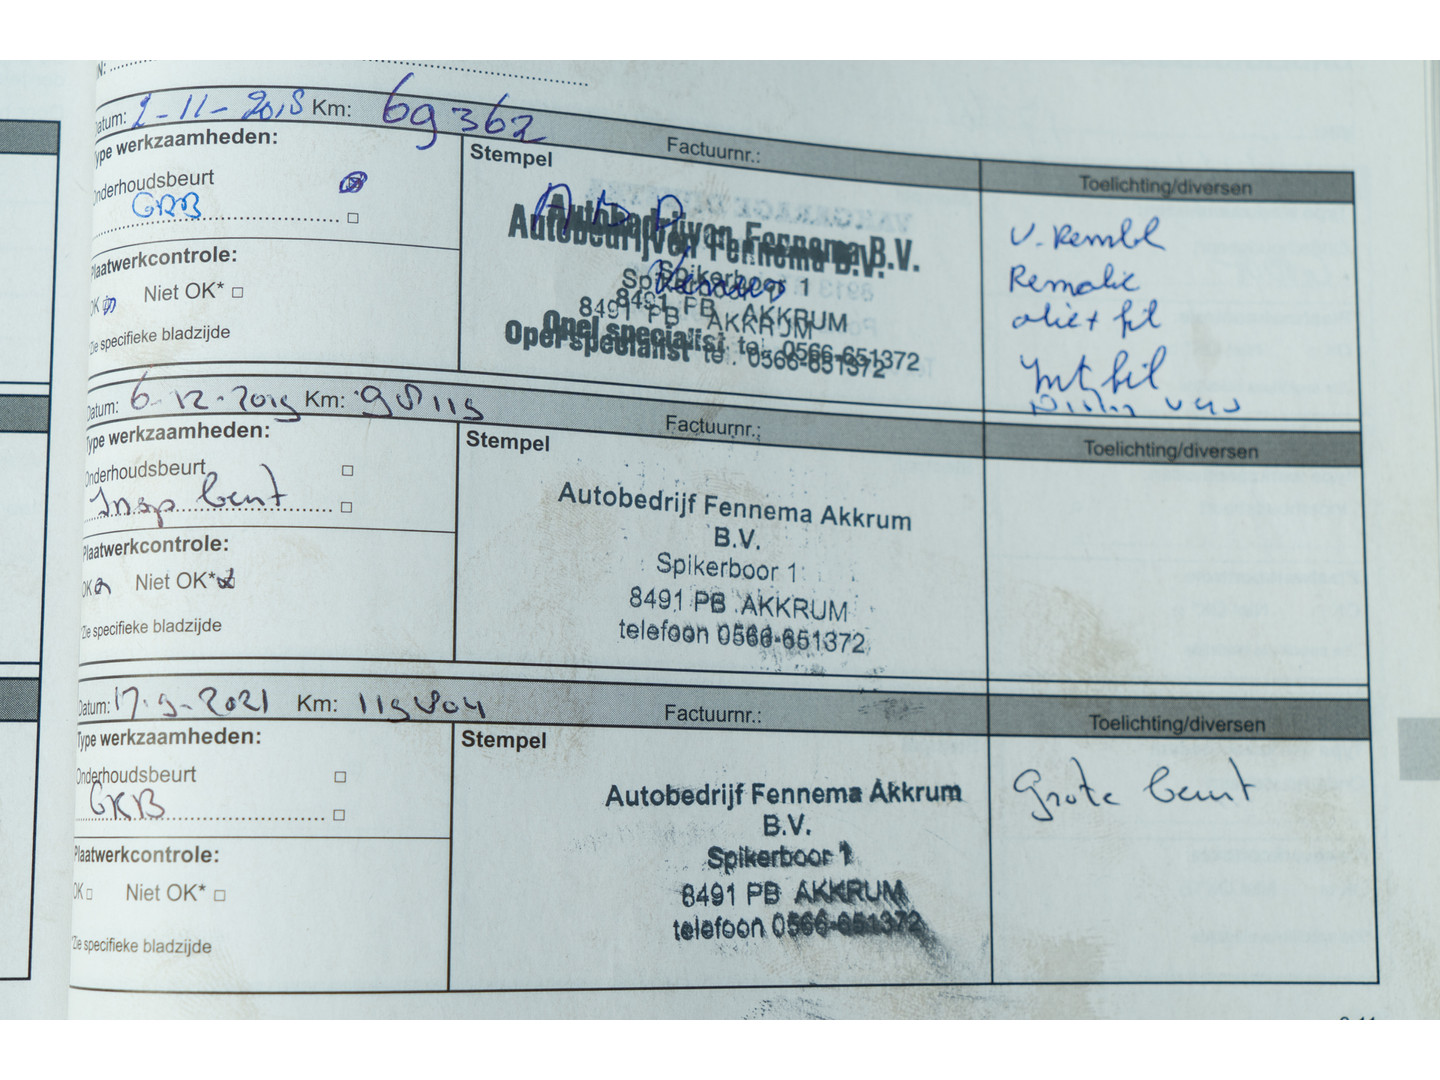 Datum: 2-11-2018 Km: 69362
Factuurnr.:
Type werkzaamheden:
Stempel
Toelichting/diversen
Onderhoudsbeurt
GRB
Plaatwerkcontrole:
OK Niet OK*
*Zie specifieke bladzijde
Autobedrijven Fennema B.V.
Spikerboor 1
8491 PB AKKRUM
Opel specialist tel. 0566-651372
V. Rembl
Remolie
olie + fil
Int fil
Datum: 6-12-2019 Km: 98119
Factuurnr.:
Type werkzaamheden:
Stempel
Toelichting/diversen
Onderhoudsbeurt
Insp beurt
Plaatwerkcontrole:
OK Niet OK*
*Zie specifieke bladzijde
Autobedrijf Fennema Akkrum
B.V.
Spikerboor 1
8491 PB AKKRUM
telefoon 0566-651372
Datum: 17-9-2021 Km: 119804
Factuurnr.:
Type werkzaamheden:
Stempel
Toelichting/diversen
Onderhoudsbeurt
GRB
Plaatwerkcontrole:
OK Niet OK*
*Zie specifieke bladzijde
Autobedrijf Fennema Akkrum
B.V.
Spikerboor 1
8491 PB AKKRUM
telefoon 0566-651372
Grote beurt